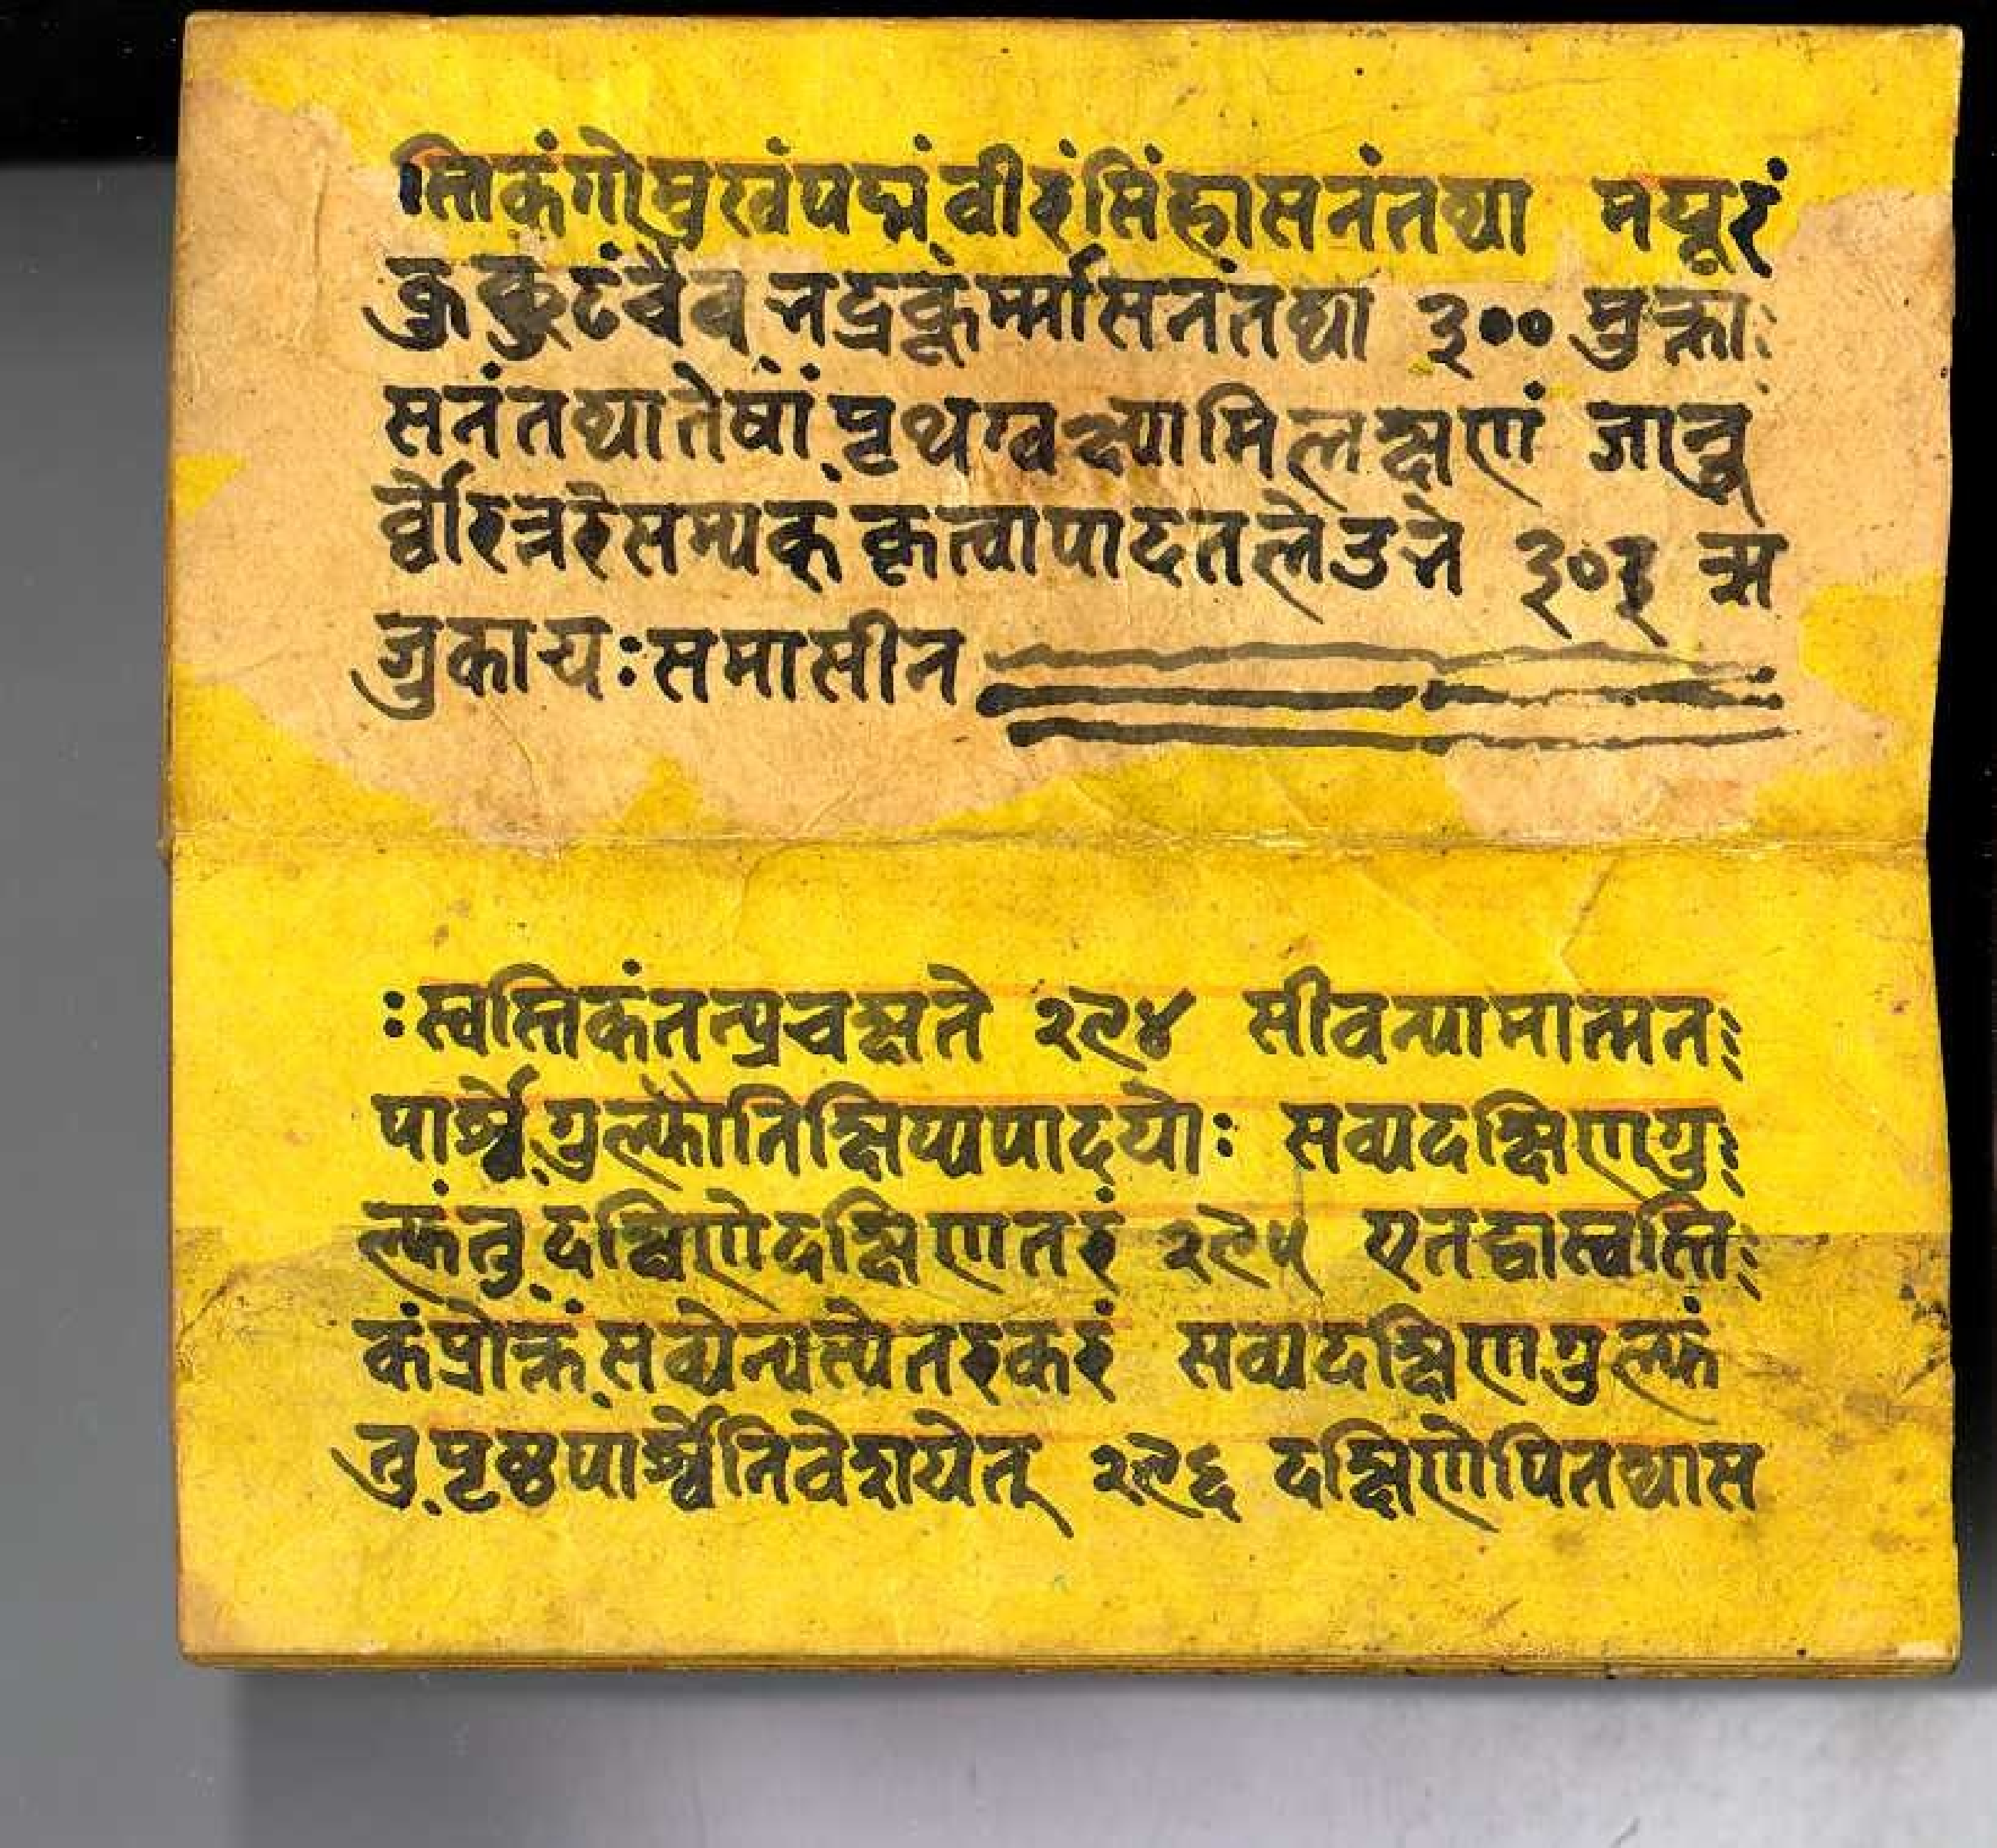 स्तिकंगोमुखंपद्मंवीरंसिंहासनंतथा मयूरं
कुक्कुटंचैव नद्रकूर्म्मासनंतथा ३०० मुक्ता
सनंतथातेषां पृथग्वक्ष्यामिलक्षणं जानु
र्वोरन्तरेसम्यक् कृत्वापादतलेउभे ३०१ ऋ
जुकायः समासीन
ः स्वस्तिकंतत्प्रचक्षते २९४ सीवन्यामात्मनः
पार्श्वेगुल्फौनिक्षिप्यपादयोः सव्यदक्षिणगु
ल्फंतु दक्षिणेदक्षिणेतरं २९५ एतद्वास्वस्ति
कंप्रोक्तं सव्येन्यस्येतरकरं सव्यदक्षिणगुल्फं
तु पृष्ठपार्श्वेनिवेशयेत् २९६ दक्षिणेपितथास